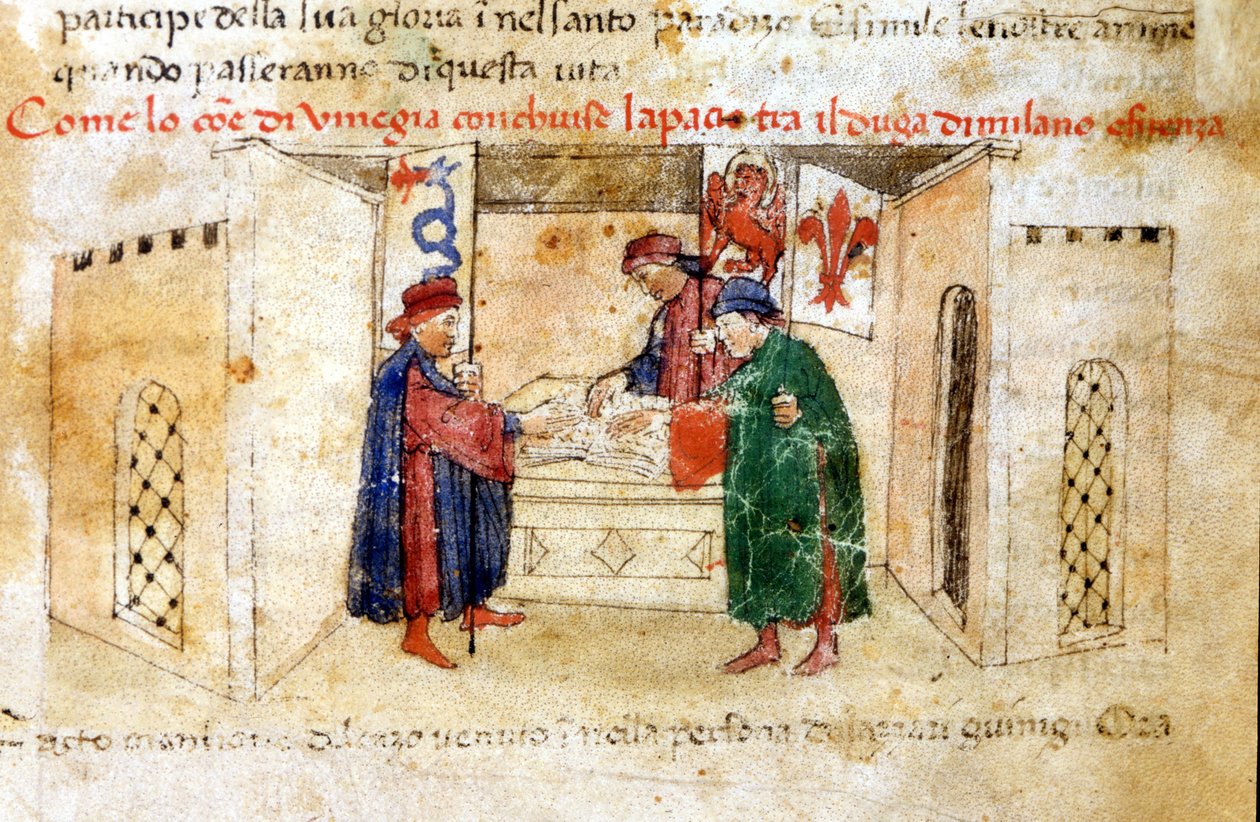 participe della sua gloria ĩ nel santo paradizo E simile le nostre anime
quando passeranno di questa vita
Come lo cõe di Vinegia conchuise la pacie tra il duga di milano e firenza
acto mantione del cazo venuto ĩ nella persona di lazzari guinigi Ora